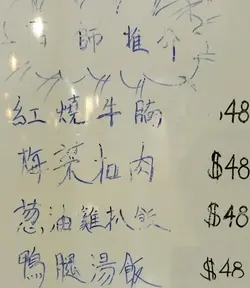 師推介
紅燒牛腩 .48
梅菜扣肉 $48
葱油雞扒飯 $48
鴨腿湯飯 $48